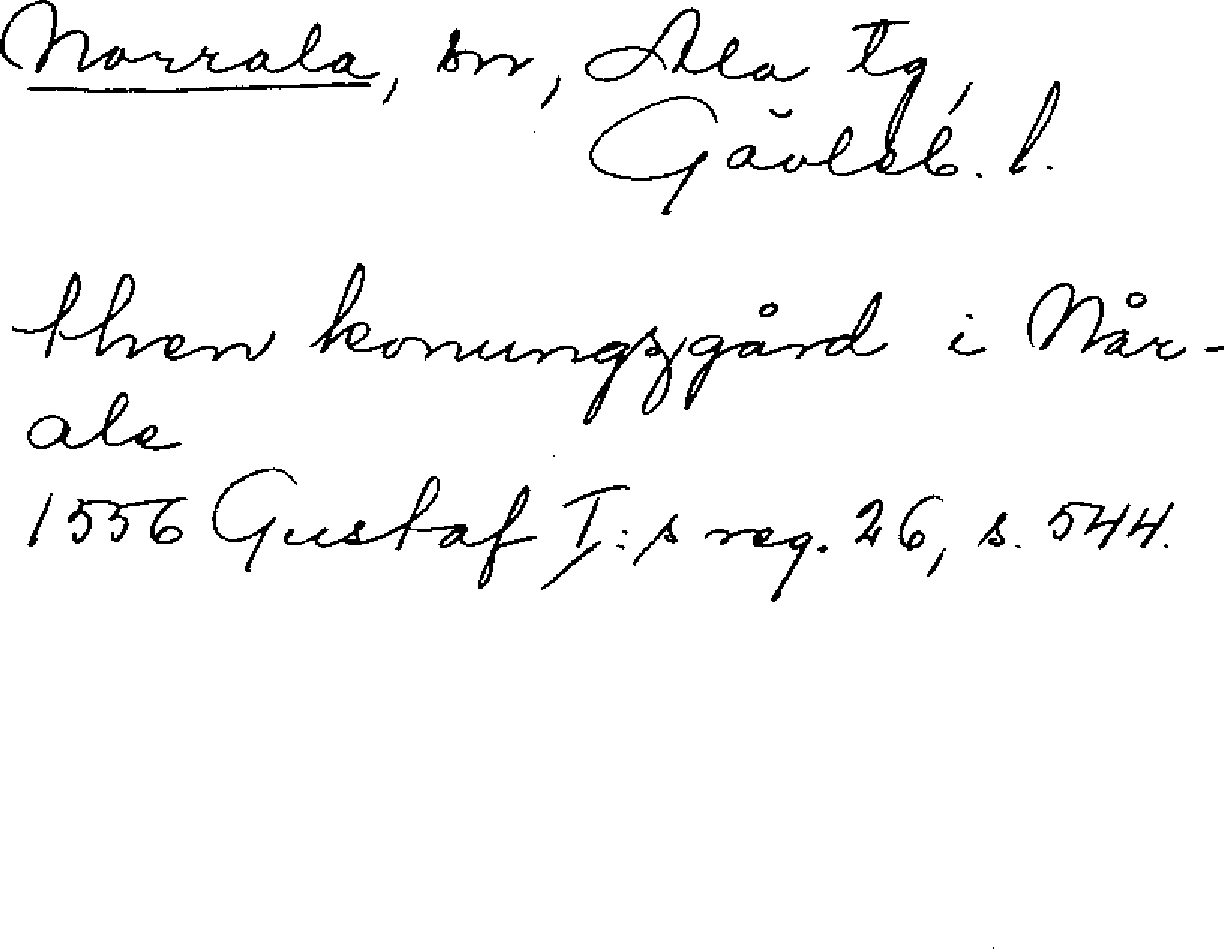 Norrala, sn, Ala tg,
Gävleb. l.
then konungzgård i Når-
ala
1556 Gustaf I:s reg. 26, s. 544.